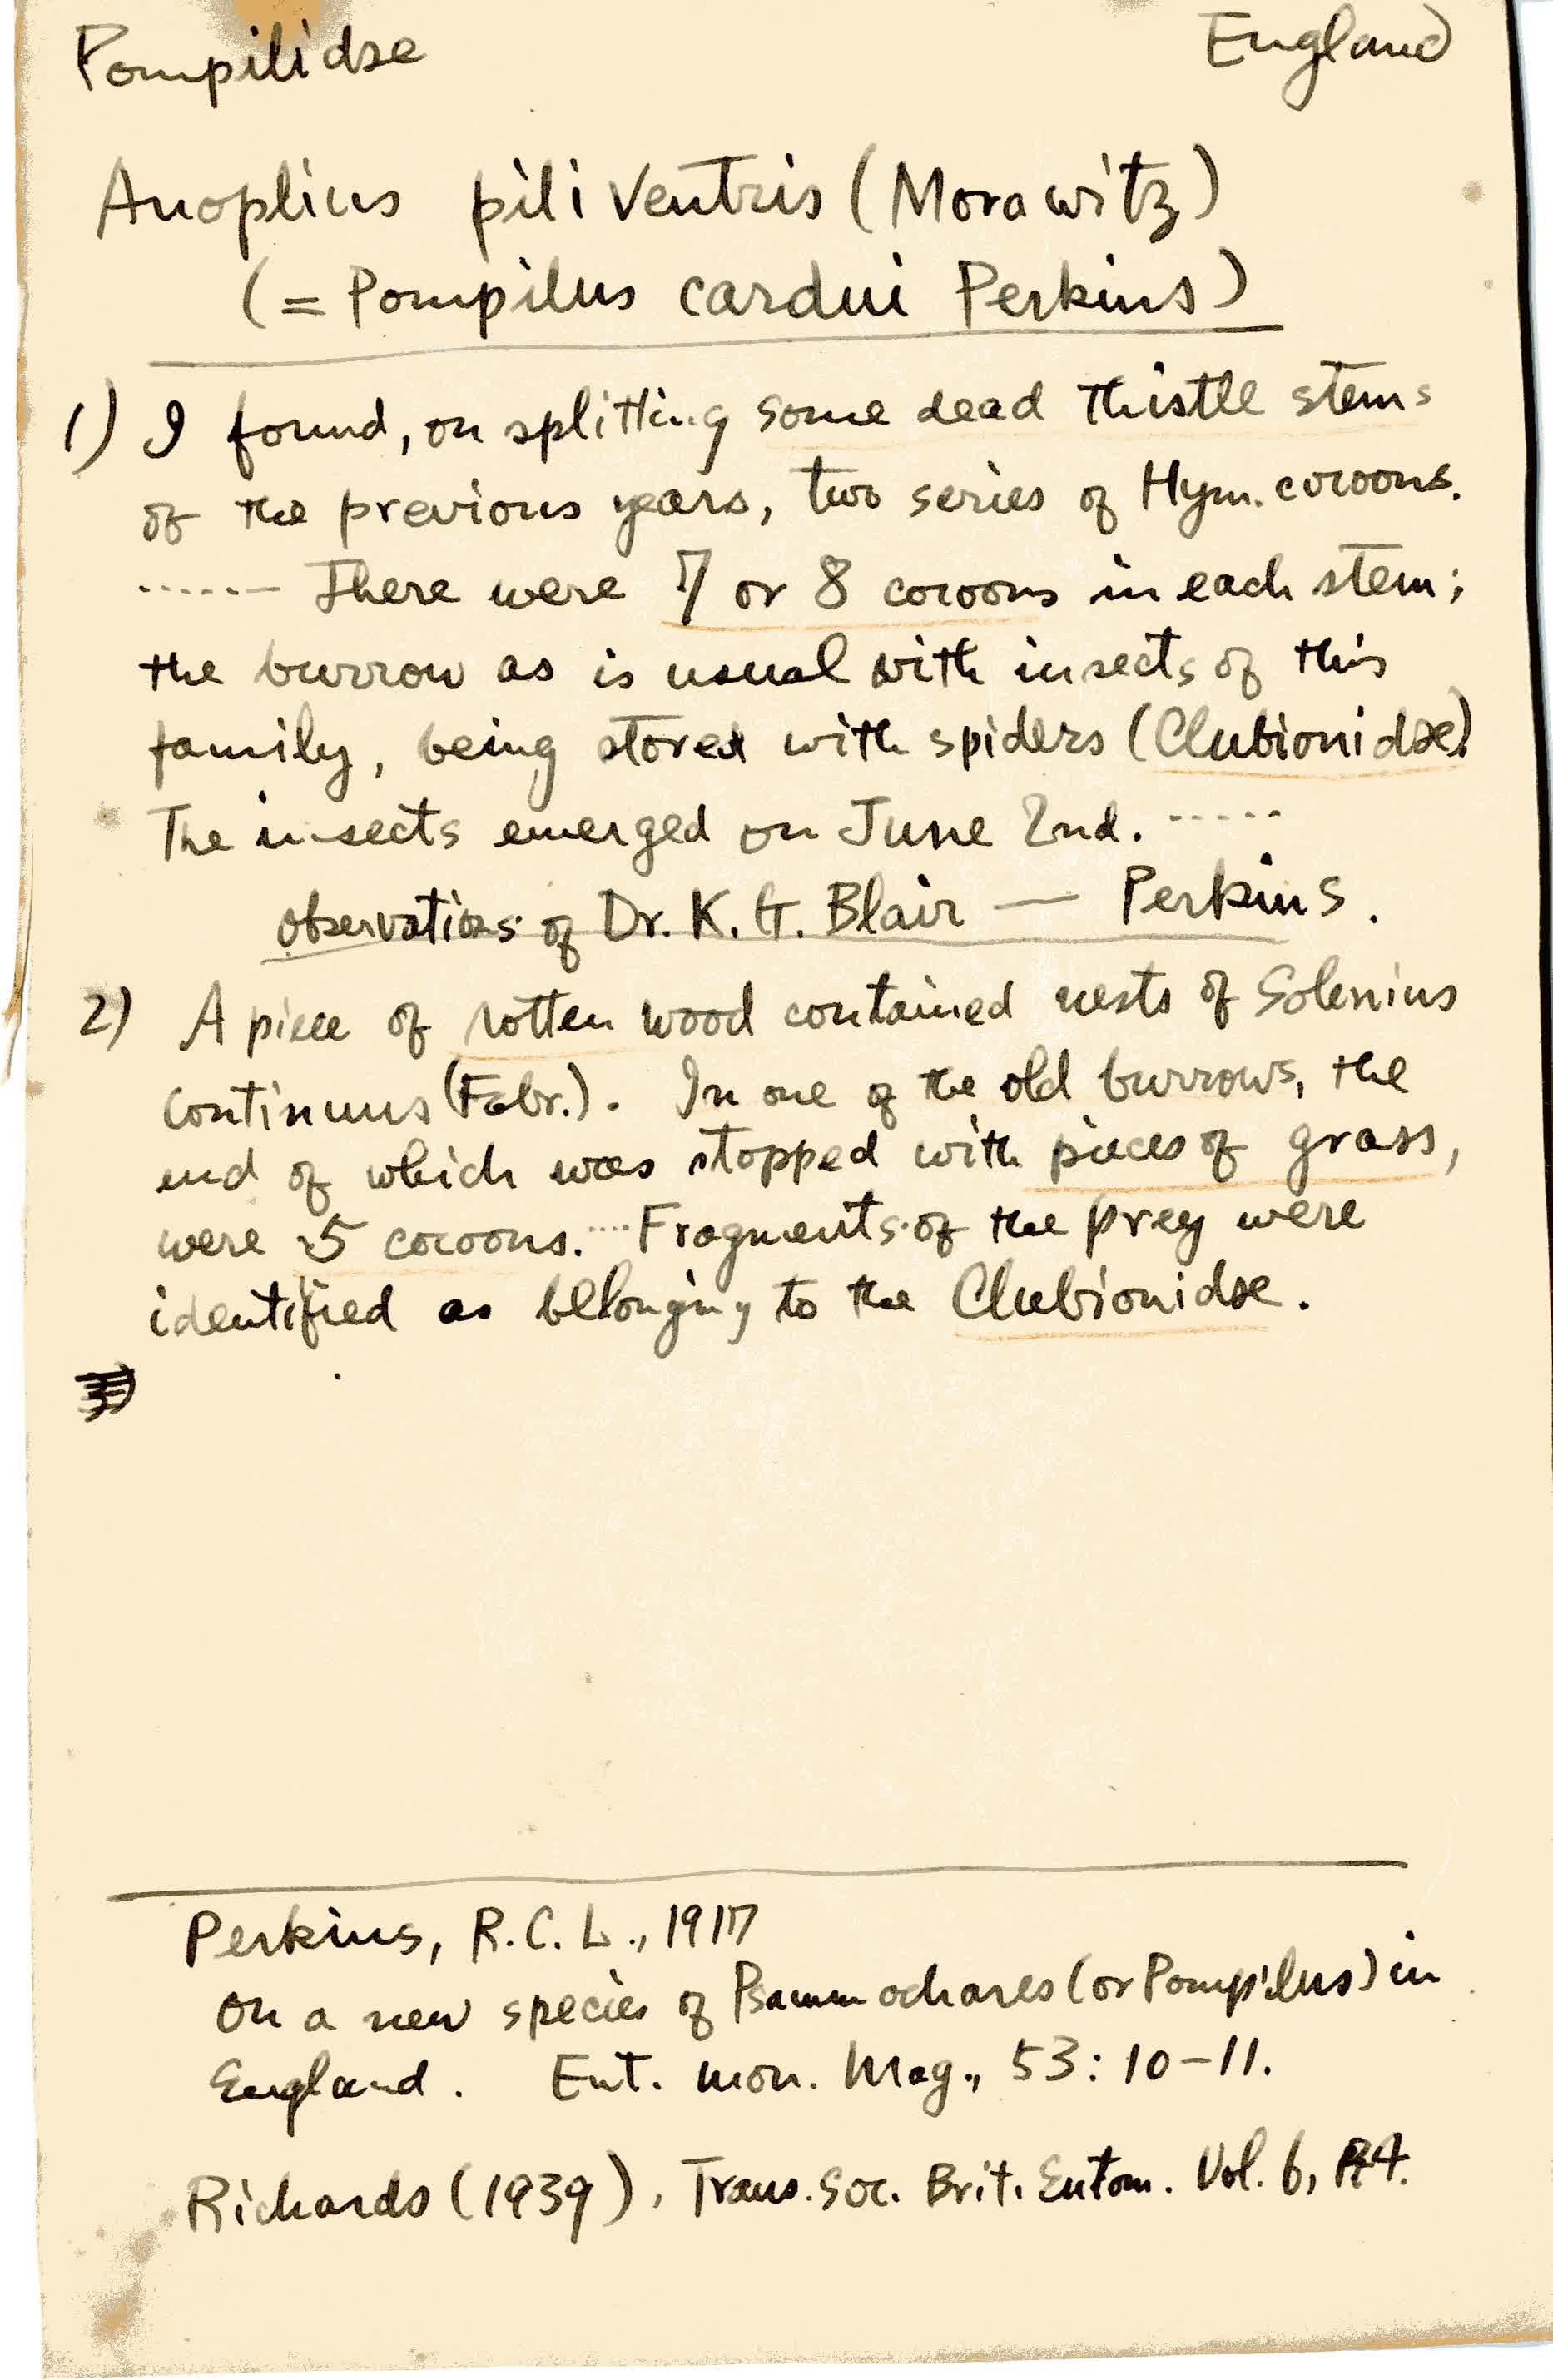 Pompilidae England
Anoplius piliventris (Morawitz)
(= Pompilus cardui Perkins)
1) I found, on splitting some dead thistle stems
of the previous years, two series of Hym. cocoons.
...... There were 7 or 8 cocoons in each stem;
the burrow as is usual with insects of this
family, being stored with spiders (Clubionidae).
The insects emerged on June 2nd. .....
Observations of Dr. K. G. Blair — Perkins.
2) A piece of rotten wood contained nests of Solenius
continuus (Fabr.). In one of the old burrows, the
end of which was stopped with pieces of grass,
were 5 cocoons. .... Fragments of the prey were
identified as belonging to the Clubionidae.
Perkins, R.C.L., 1917
On a new species of Psammochares (or Pompilus) in
England. Ent. mon. Mag., 53: 10-11.
Richards (1939), Trans. Soc. Brit. Entom. Vol. 6,